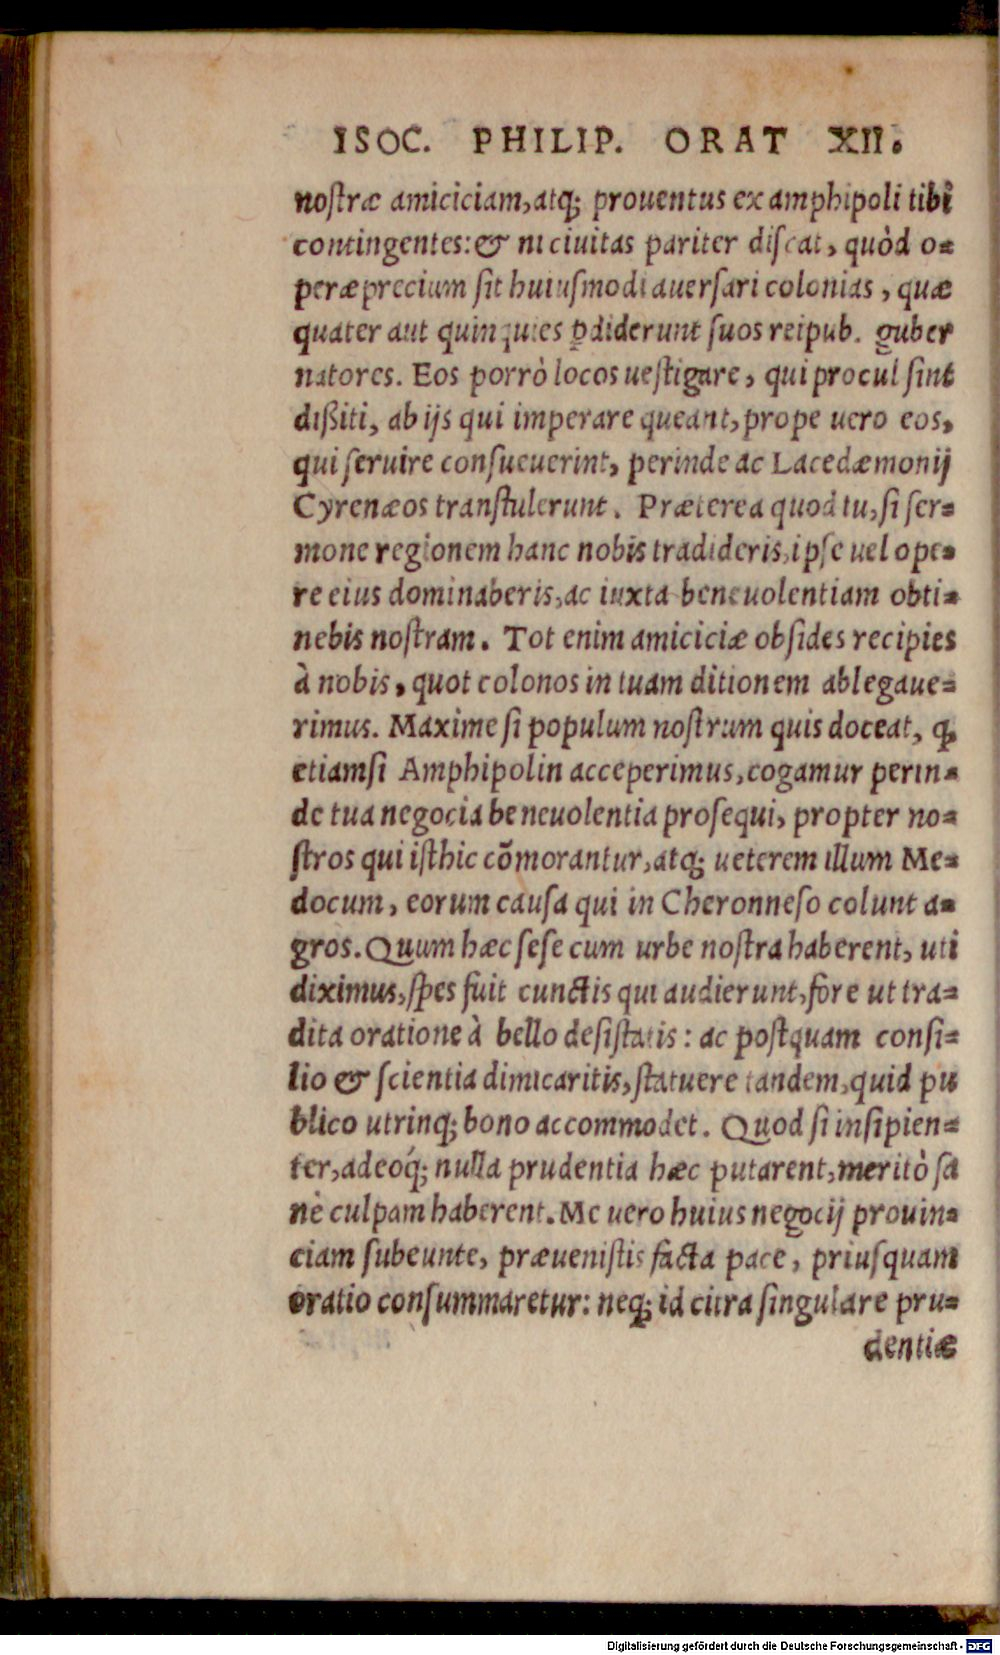 ISOC. PHILIP. ORAT XII.
nostræ amiciciam, atq; prouentus ex amphipoli tibi
contingentes: & ni ciuitas pariter discat, quòd o-
peræprecium sit huiusmodi auersari colonias, quæ
quater aut quinquies ꝑdiderunt suos reipub. guber
natores. Eos porrò locos uestigare, qui procul sint
dißiti, ab ijs qui imperare queant, prope uero eos,
qui seruire consueuerint, perinde ac Lacedæmonij
Cyrenæos transtulerunt. Præterea quod tu, si ser-
mone regionem hanc nobis tradideris, ipse uel ope-
re eius dominaberis, ac iuxta beneuolentiam obti-
nebis nostram. Tot enim amiciciæ obsides recipies
à nobis, quot colonos in tuam ditionem ablegaue-
rimus. Maxime si populum nostrum quis doceat, ꝙ
etiamsi Amphipolin acceperimus, cogamur perin-
de tua negocia beneuolentia prosequi, propter no-
stros qui isthic cõmorantur, atq; ueterem illum Me-
docum, eorum causa qui in Cheronneso colunt a-
gros. Quum hæc sese cum urbe nostra haberent, uti
diximus, spes fuit cunctis qui audierunt, fore ut tra-
dita oratione à bello desistatis: ac postquam consi-
lio & scientia dimicaritis, statuere tandem, quid pu
blico utrinq; bono accommodet. Quod si insipien-
ter, adeoq́; nulla prudentia hæc putarent, meritò sa
nè culpam haberent. Me uero huius negocij prouin-
ciam subeunte, præuenistis facta pace, priusquam
oratio consummaretur: neq; id citra singulare pru-
dentiæ
Digitalisierung gefördert durch die Deutsche Forschungsgemeinschaft - DFG